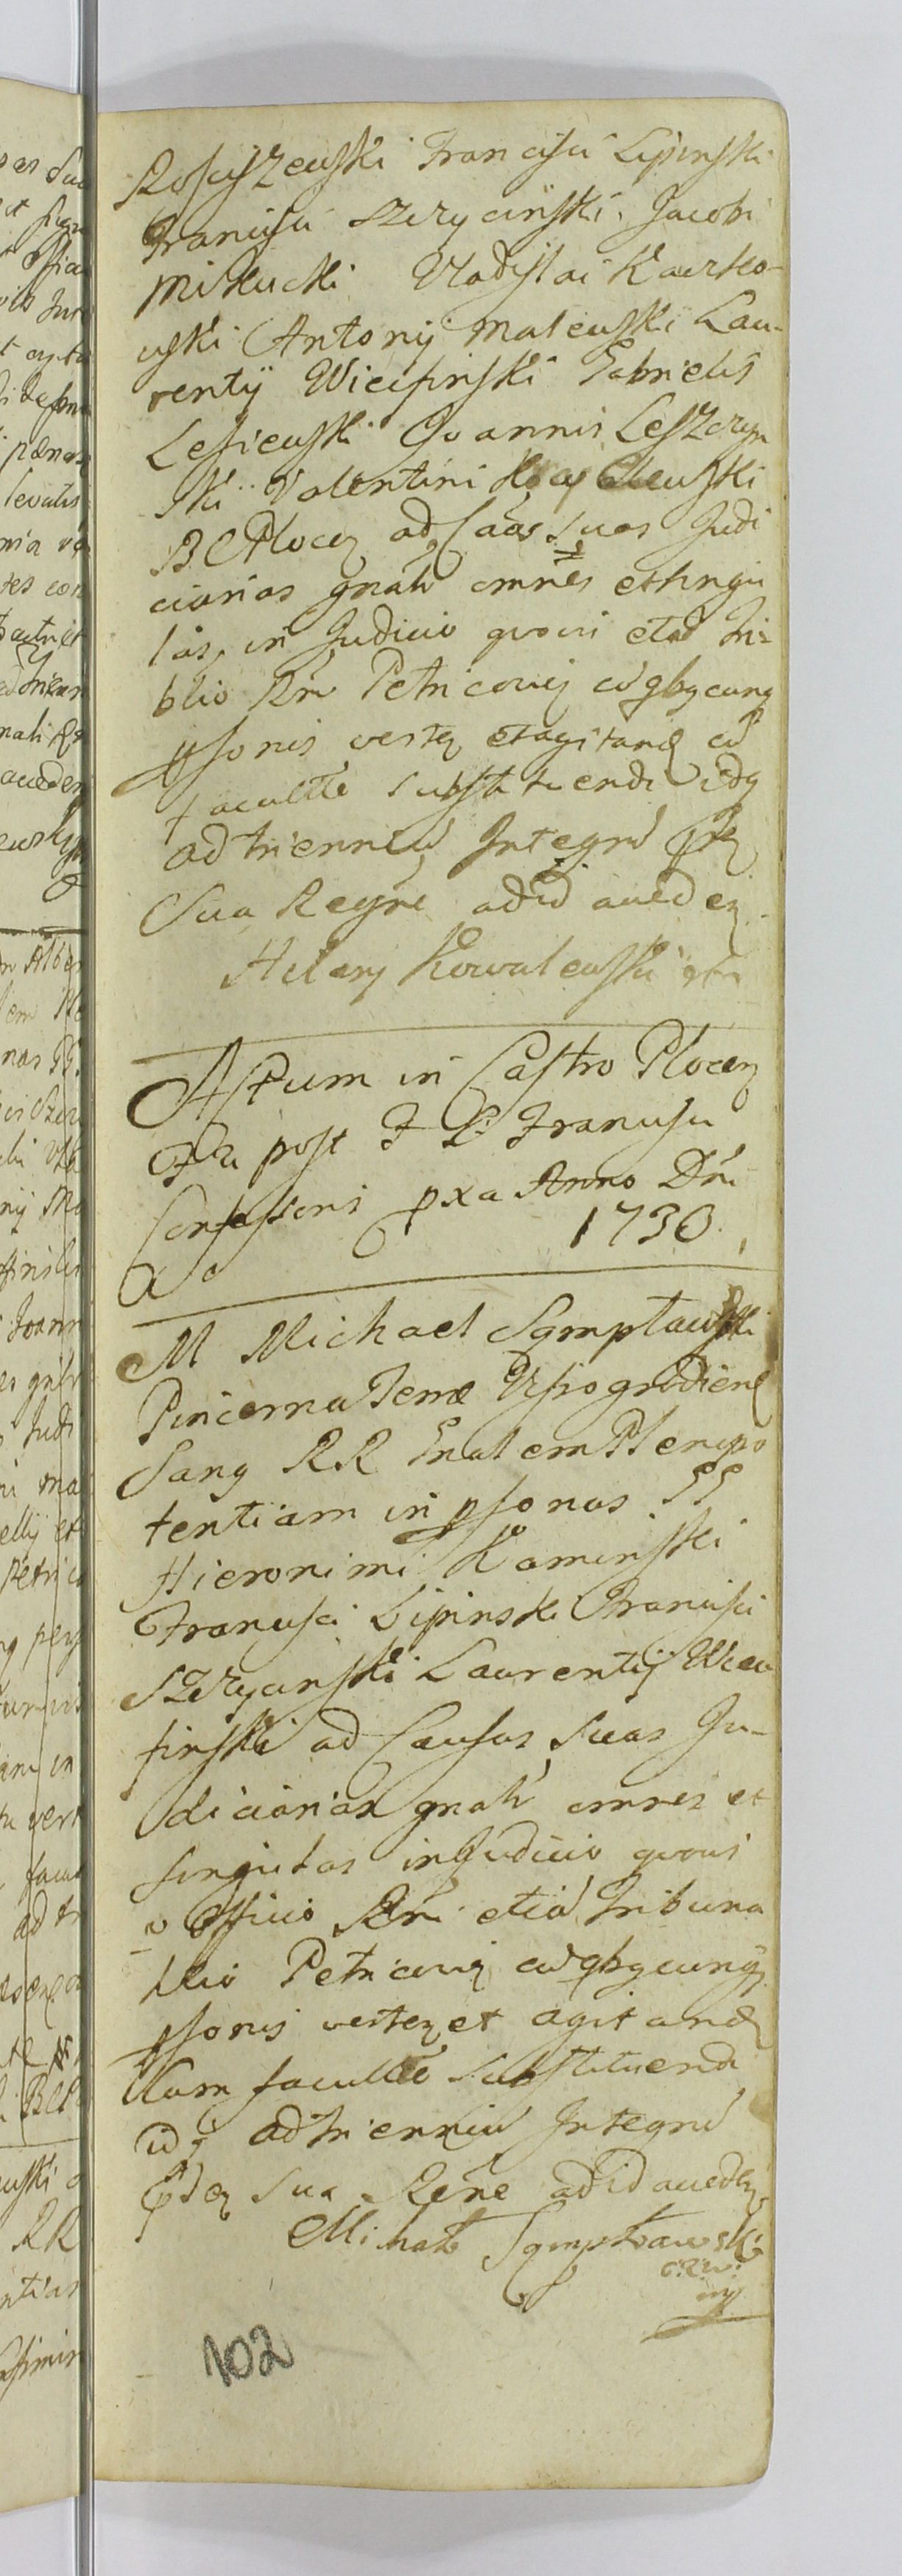 Rościszewski Francisci Lipinski
Francisci Szczycinski. Jacobi
Miłucki Vladislai Kawsko-
wski Antonij Malewski Lau-
rentij Wiecfinski Gabrielis
Lesiewski Joannis Leszczyn
ski Valentini
BCPlocen ad Caas suas Judi
ciarias gnalr omnes et singu
las, in Judicio quovis etiã Tri-
blio Rñi Petricovien cũ qbqcunq
psonis verten et agitand cũ
facultte substituendi idq
ad triennium Integrũ
Sua Regñe ad id acceden
Hilary Kowalewski

Actum in Castro Plocen
Fr̃a post F S: Francisci
Confessoris pxa Anno Dñi
1730.

M Michael Sęmpławski
Pincerna Terræ Wyssogrodiens
Sanq RR Gnalem Plenipo
tentiam in psonas GG
Hieronimi Kaminski
Francisci Lipinski Francisci
Szczycinski Laurentij Wiec
finski ad Causas suas Ju-
diciarias gnalr omnes et
singulas in Judicio quovis
v Officio Rñi etiã Tribuna
blio Petricovien cũ qbqcunq
psonis verten et agitand
Cum facultte substituendi
idq ad triennium Integrũ
sua Reñe ad id acceden
Michał Sęmpławski

102